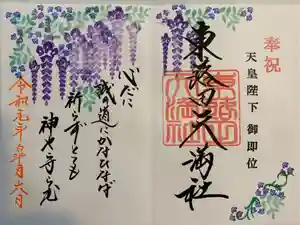 奉祝
天皇陛下 御即位
東蕗田天満社
心だに
誠の道にかなひなば
祈らずとても
神や守らむ
令和元年五月六日